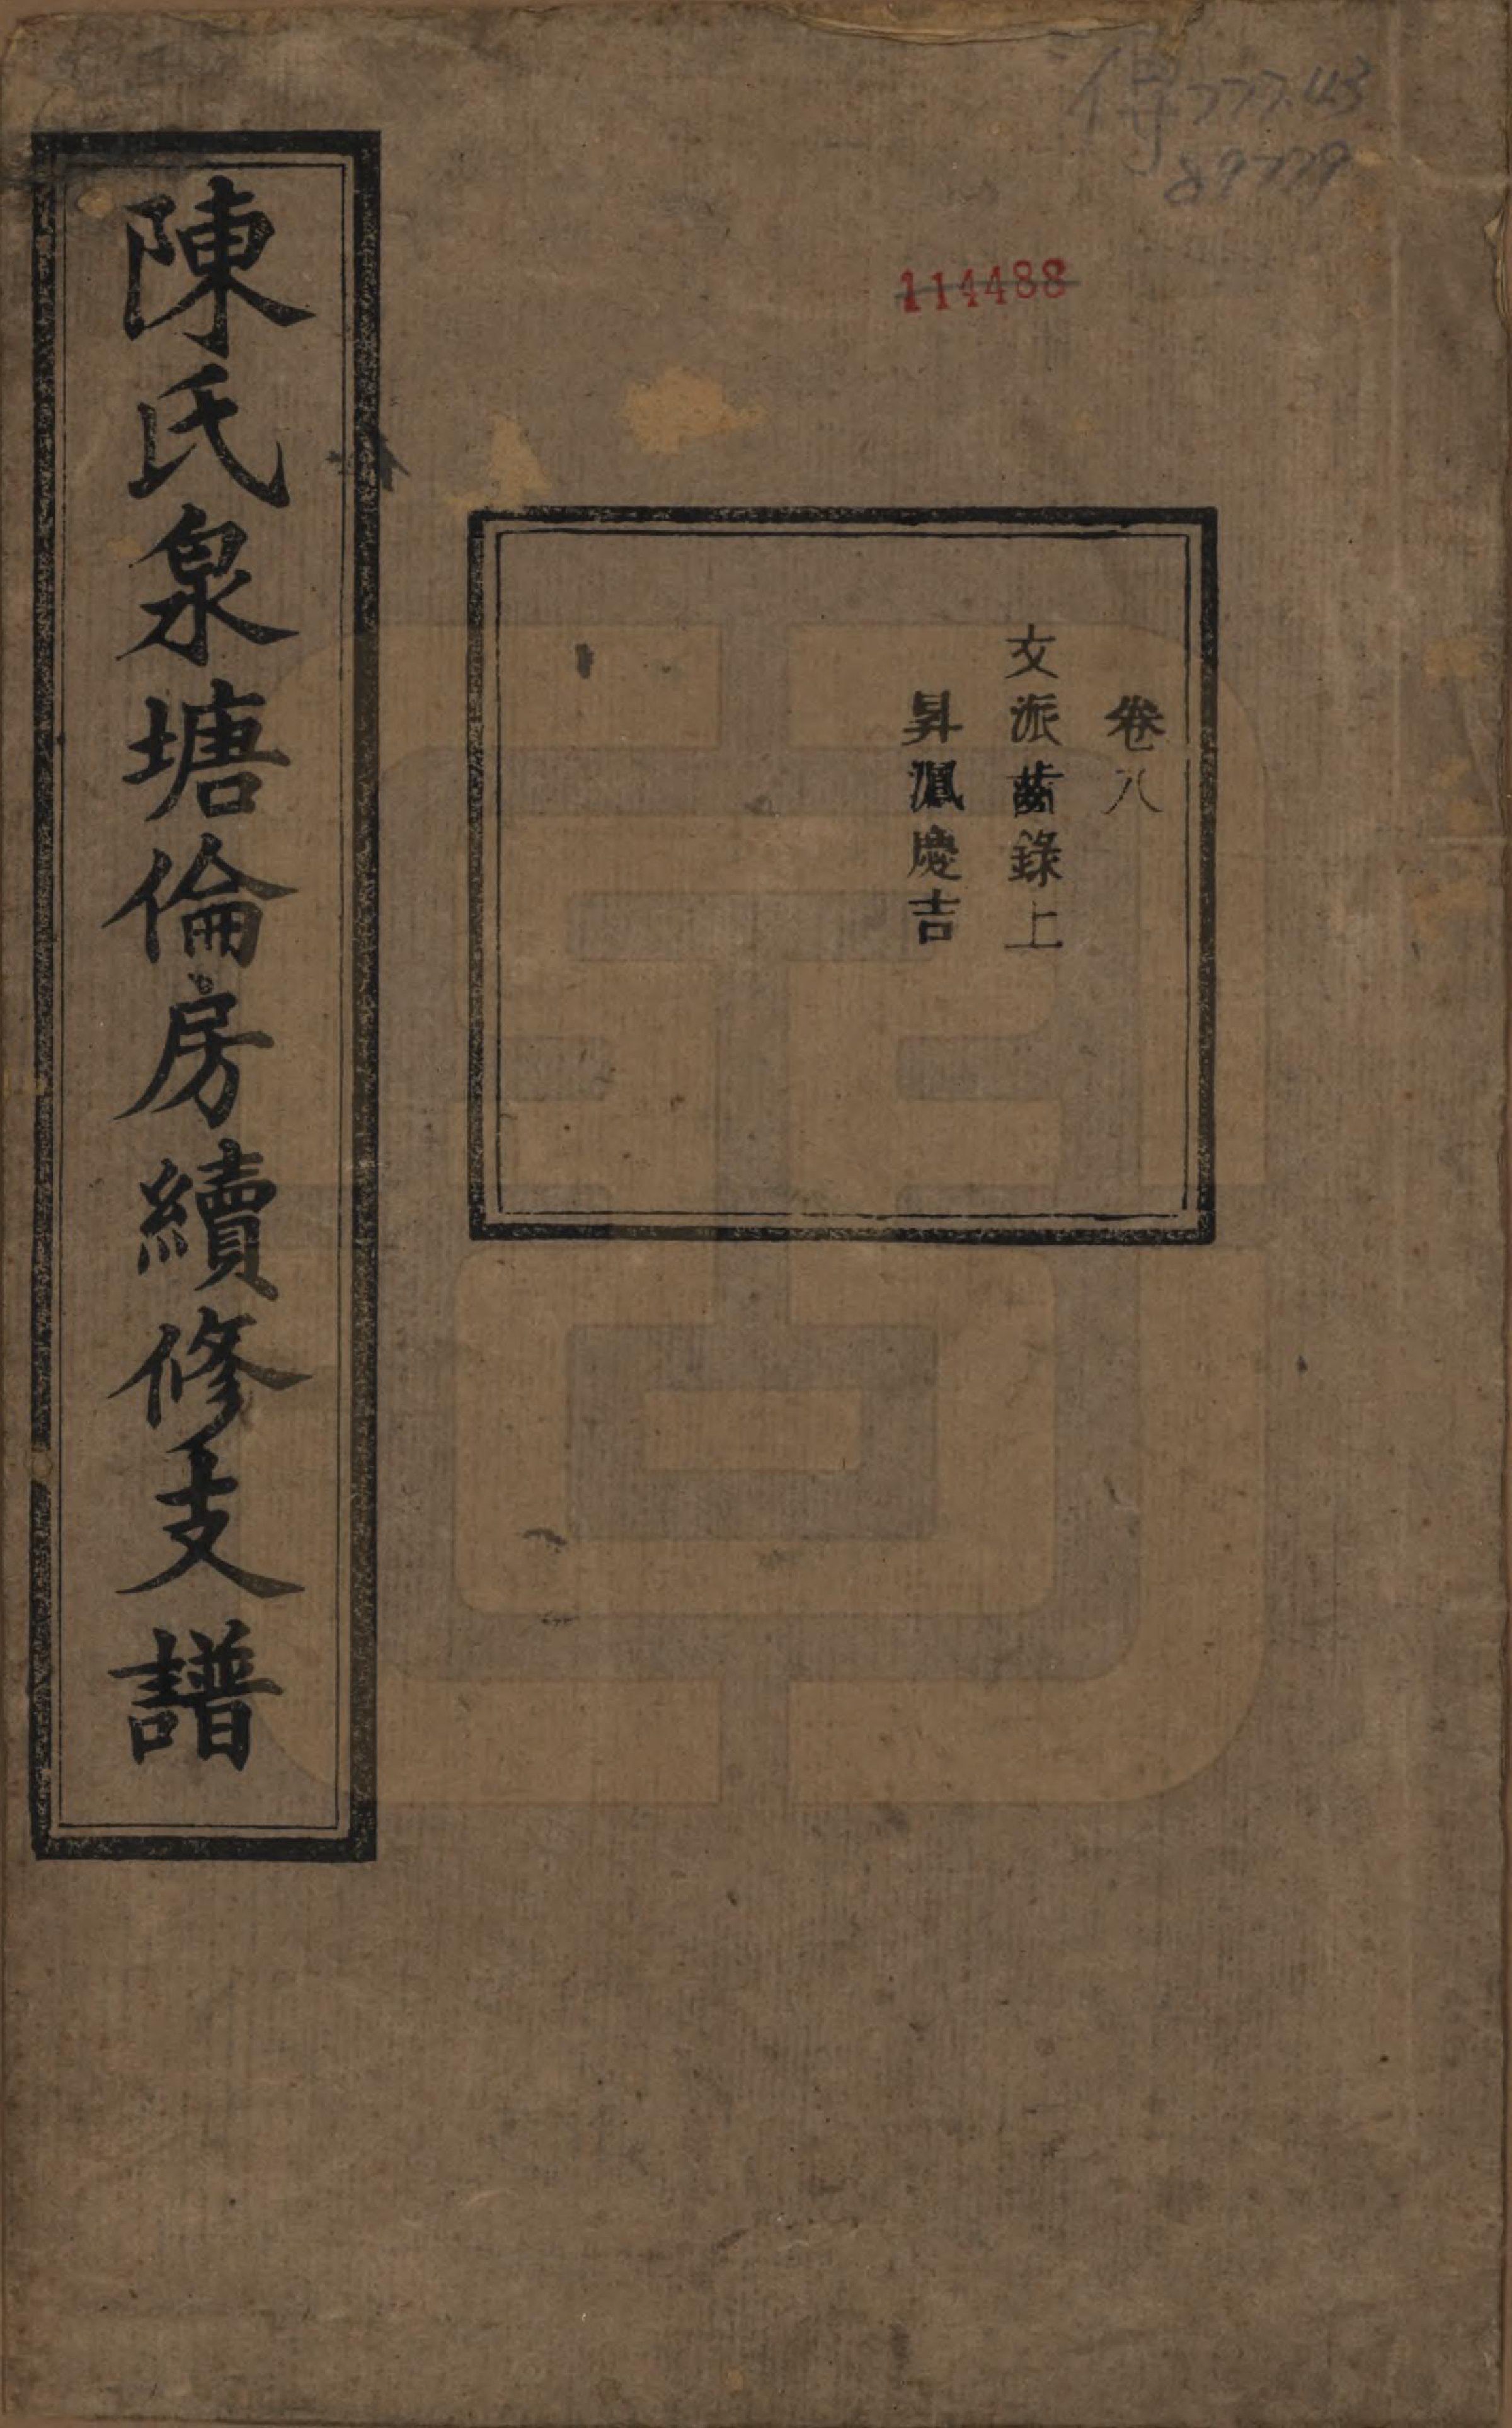 傳777.43
89779
114488
卷八
文派齒錄上
昇鳳慶吉
陳氏泉塘倫房續修支譜